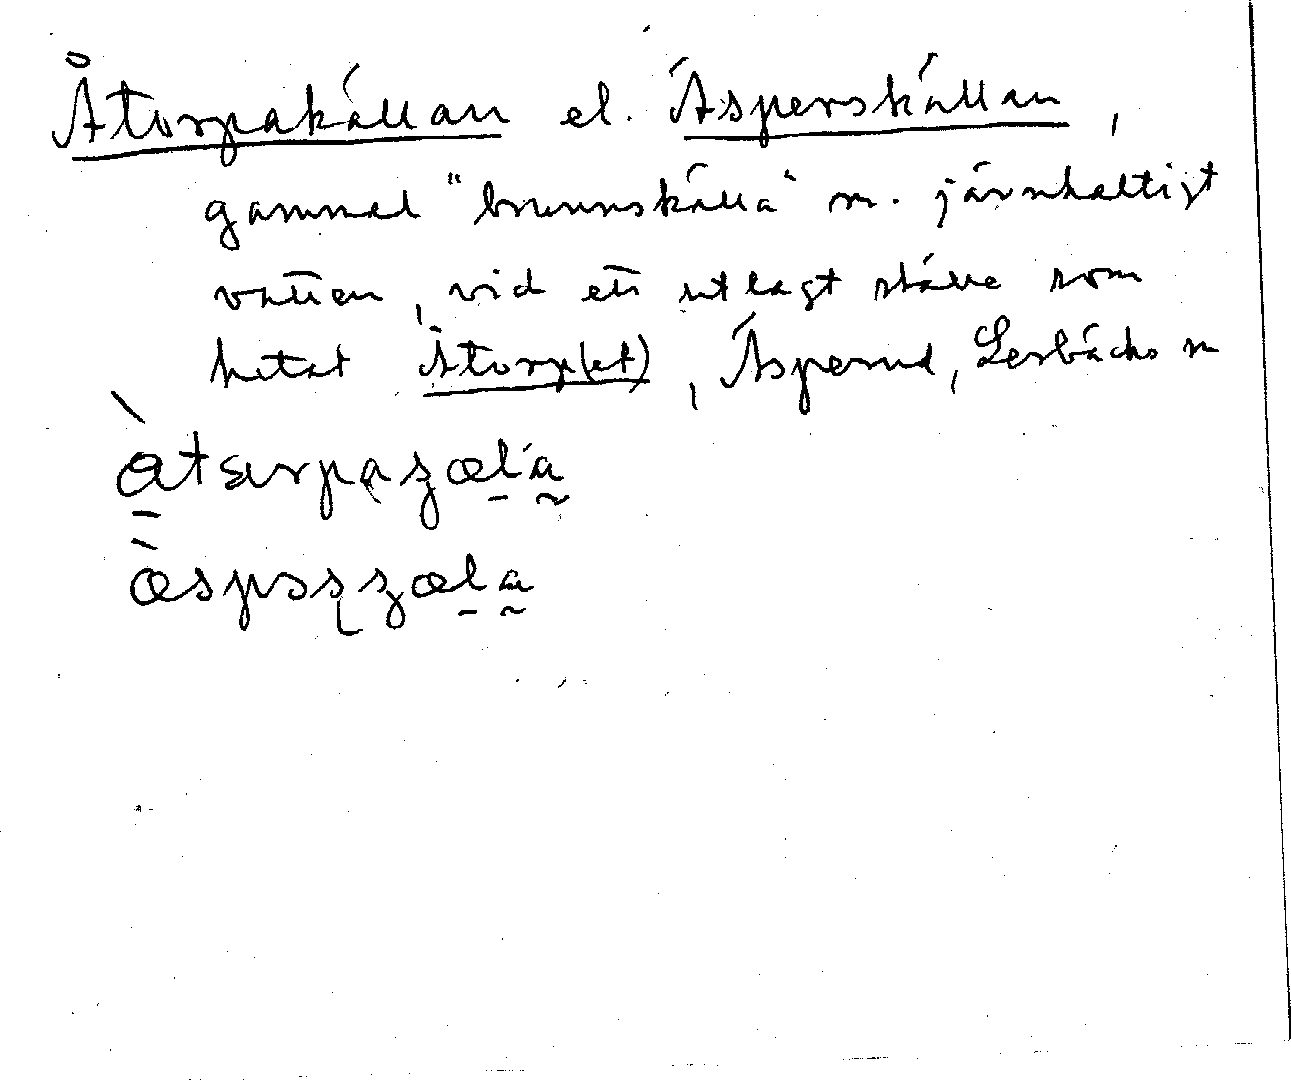 Åtorpakällan el. Äsperskällan,
gammal "brunnskälla" m. järnhaltigt
vatten, vid ett utlagt ställe som
hetat Åtorp(et), Äsperud, Lerbäcks m